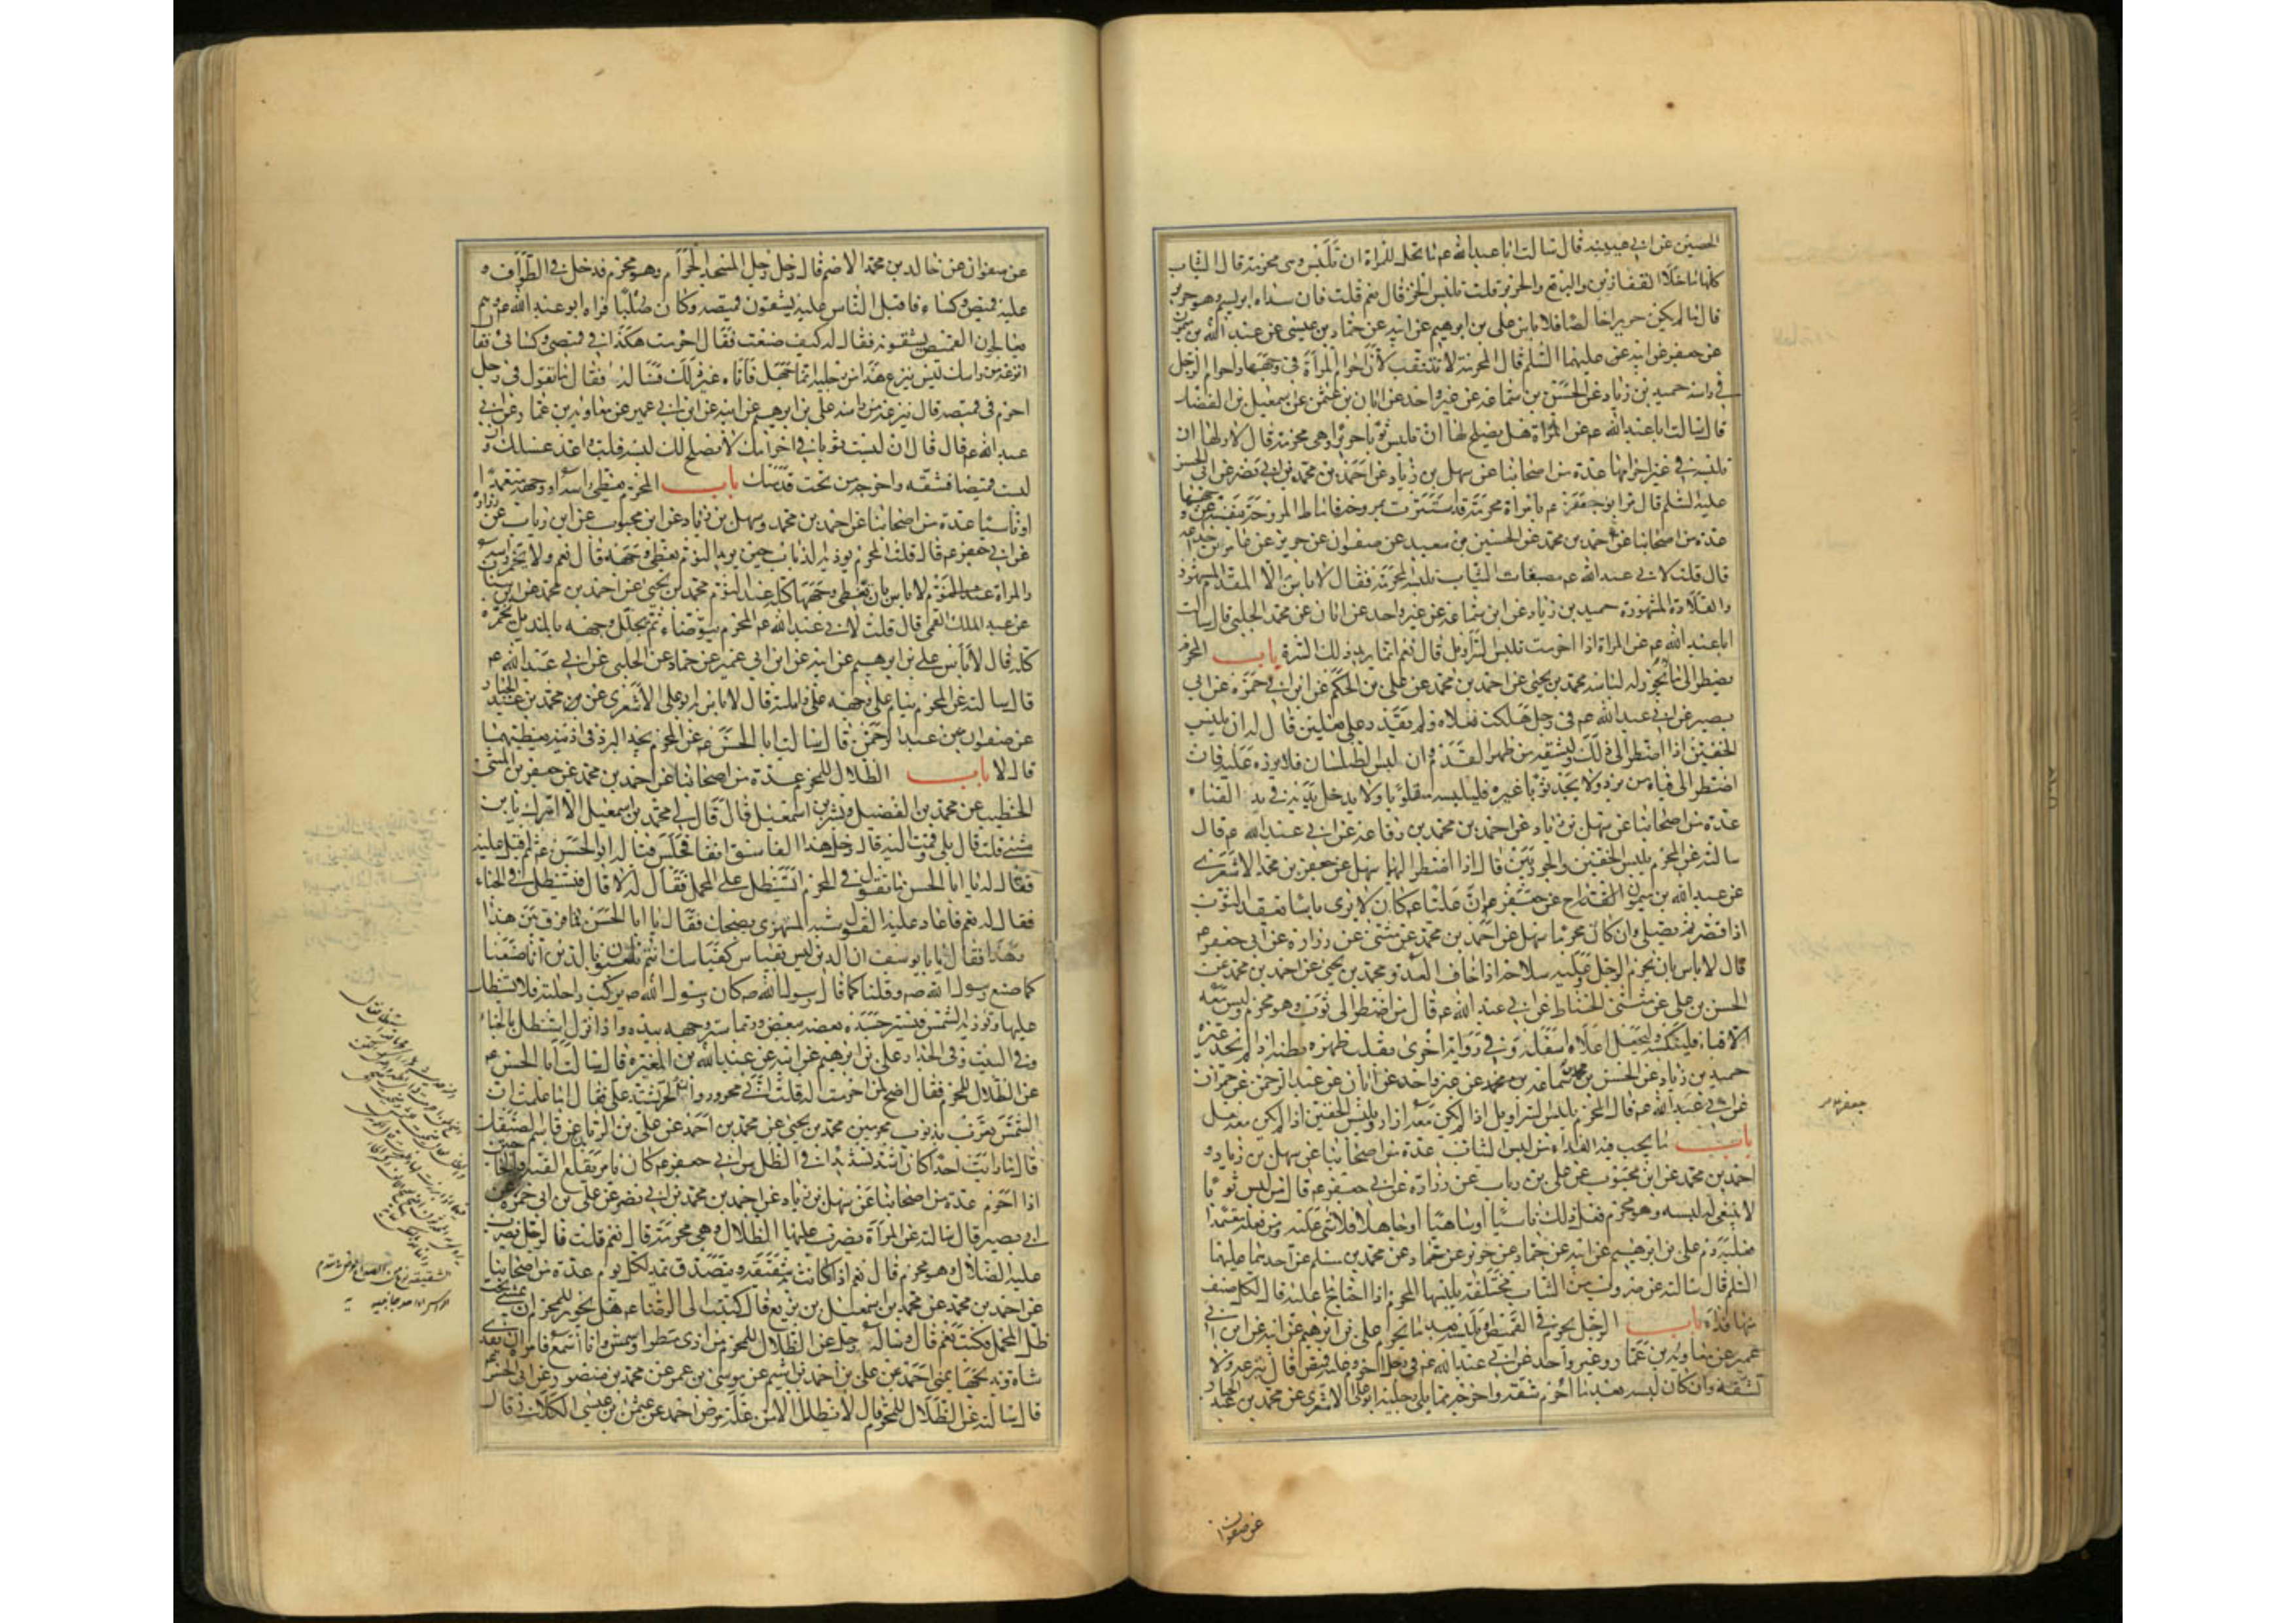 الحصين عن ابي عيينه قال سالت ابا عبدالله ع ما يحل للمراة ان تلبس وهي محرمة قال الثياب
كلها ما خلا القفازين والبرقع والحرير قلت تلبس الخز قال نعم قلت فان سداه ابريسم وهو حرير
قال ما لم يكن حريرا خالصا فلا باس علي بن ابرهيم عن ابيه عن حماد بن عيسى عن عبد الله بن ميمون
عن جعفر عن ابيه عليهما السلم قال المحرمة لا تتنقب لان احرام المراة في وجهها واحرام الرجل
في راسه حميد بن زياد عن الحسن بن سماعه عن غير واحد عن ابان بن عثمن عن اسمعيل بن الفضل
قال سالت ابا عبدالله ع عن المراة هل يصلح لها ان تلبس ثوبا حريرا وهي محرمة قال لا ولها ان
تلبسه في غير احرامها عدة من اصحابنا عن سهل بن زياد عن احمد بن محمد بن ابي نصر عن ابي الحسن
عليه السلم قال مر ابو جعفر ع بامراة محرمة قد استترت بمروحة فاماط المروحة بنفسه عن وجهها
عدة من اصحابنا عن احمد بن محمد عن الحسين بن سعيد عن صفوان عن حريز عن عامر بن جذاعه
قال قلت لابي عبدالله ع مصبغات الثياب تلبسه المحرمة فقال لا باس الا المفدم المشهور
والقلادة المشهورة حميد بن زياد عن ابن سماعه عن غير واحد عن ابان عن محمد الحلبي قال سالت
ابا عبد الله ع عن المراة اذا احرمت تلبس السراويل قال نعم انما يريد بذلك السترة باب المحرم
يضطر الى ما لا يجوز له لباسه محمد بن يحيى عن احمد بن محمد عن علي بن الحكم عن ابن ابي حمزه عن ابي
بصير عن ابي عبد الله ع في رجل هلكت نعلاه ولم يقدر على نعلين قال له ان يلبس
الخفين اذا اضطر الى ذلك وليشقه من ظهر القدم وان لبس الطيلسان فلا يزره عليه فان
اضطر الى قباء من برد ولا يجد ثوبا غيره فليلبسه مقلوبا ولا يدخل يديه في يد القباء
عدة من اصحابنا عن سهل بن زياد عن احمد بن محمد بن رفاعه عن ابي عبد الله ع قال
سالته عن المحرم يلبس الخفين والجوربين قال اذا اضطر اليهما سهل عن جعفر بن محمد الاشعري
عن عبد الله بن ميمون القداح عن جعفر ع ان عليا ع كان لا يرى باسا بعقد الثوب
اذا قصر ثم يصلي وان كان محرما سهل عن احمد بن محمد عن مثنى عن زرارة عن ابي جعفر ع
قال لا باس بان يحرم الرجل وعليه سلاحه اذا خاف العدو محمد بن يحيى عن احمد بن محمد عن
الحسن بن علي عن مثنى الحناط عن ابي عبد الله ع قال من اضطر الى ثوب وهو محرم وليس معه
الا قباء فلينكسه وليجعل اعلاه اسفله وفي رواية اخرى يقلب ظهره بطنه اذا لم يجد غيره
حميد بن زياد عن الحسن بن محمد بن سماعة عن غير واحد عن ابان عن عبد الرحمن عن حمران
عن ابي عبد الله ع قال المحرم يلبس السراويل اذا لم يكن معه ازار ويلبس الخفين اذا لم يكن معه نعل
باب ما يجب فيه الفداء من لبس الثياب عدة من اصحابنا عن سهل بن زياد و
احمد بن محمد عن ابن محبوب عن علي بن رياب عن زرارة عن ابي جعفر ع قال من لبس ثوبا
لا ينبغي له لبسه وهو محرم ففعل ذلك ناسيا او ساهيا او جاهلا فلا شي عليه ومن فعله متعمدا
فعليه دم علي بن ابرهيم عن ابيه عن حماد عن حريز عن محمد بن مسلم عن احدهما عليهما
السلم قال سالته عن ضروب من الثياب مختلفة يلبسها المحرم اذا احتاج ما عليه قال لكل صنف
منها فداء باب الرجل يحرم في القميص او يلبسه بعد ما يحرم علي بن ابرهيم عن ابيه عن ابن ابي
عمير عن معاويه بن عمار وغير واحد عن ابي عبد الله ع في رجل احرم وعليه قميص قال ينزعه ولا
تشقه وان كان لبسه بعد ما احرم شقه واخرجه مما يلي رجليه ابو علي الاشعري عن محمد بن عبد الجبار
عن صفوان
جعفر بن عامر
عن صفوان عن خالد بن محمد الاصم قال دخل رجل المسجد الحرام وهو محرم فدخل في الطواف و
عليه قميص وكساء فاقبل الناس عليه يشقون قميصه وكان صلبا فراه ابو عبد الله ع وهم
يعالجون القميص يشقونه فقال له كيف صنعت فقال احرمت هكذا في قميصي وكسائي فقال
انزعه من راسك ليس ينزع هذا من رجليه انما جهل فاتاه غير ذلك فساله فقال ما تقول في رجل
احرم في قميصه قال ينزعه من راسه علي بن ابرهيم عن ابيه عن ابن ابي عمير عن معاويه بن عمار عن ابي
عبد الله ع قال ان لبست ثوبا في احرامك لا يصلح لك لبسه فلب واعد غسلك وان
لبست قميصا فشقه واخرجه من تحت قدميك باب المحرم يغطي راسه او وجهه متعمدا
او ناسيا عدة من اصحابنا عن احمد بن محمد وسهل بن زياد عن ابن محبوب عن ابن رياب عن زراره
عن ابي جعفر ع قال قلت المحرم يوذيه الذباب حين يريد النوم يغطي وجهه قال نعم ولا يخمر راسه
والمراة عند النوم لا باس بان تغطي وجهها كله عند النوم محمد بن يحيى عن احمد بن محمد عن ابن سنان
عن عبد الملك القمي قال قلت لابي عبد الله ع المحرم يتوضاء ثم يجلل وجهه بالمنديل يخمره
كله قال لا باس علي بن ابرهيم عن ابيه عن ابن ابي عمير عن حماد عن الحلبي عن ابي عبد الله ع
قال سالته عن المحرم ينام على وجهه على زاملته قال لا باس ابو علي الاشعري عن محمد بن عبد الجبار
عن صفوان عن عبد الرحمن قال سالت ابا الحسن ع عن المحرم يجد البرد في اذنيه يغطيهما
قال لا باب الظلال للمحرم عدة من اصحابنا عن احمد بن محمد عن جعفر بن المثنى
الخطيب عن محمد بن الفضيل وبشر بن اسمعيل قال قال لي محمد بن اسمعيل الا اسرك يا بن
مثنى فقلت بلى فقمت اليه قال دخل هذا الفاسق انفا فجلس قبالة ابي الحسن ع ثم اقبل عليه
فقال له يا ابا الحسن ما تقول في المحرم ايستظل على المحمل فقال له لا قال فيستظل في الخباء
فقال له نعم فاعاد عليه القول شبه المستهزي يضحك فقال يا ابا الحسن فما فرق بين هذا
وهذا فقال يا با يوسف ان الدين ليس يقاس كقياسك انتم تلعبون بالدين انا صنعنا
كما صنع رسول الله ص وقلنا كما قال رسول الله ص كان رسول الله ص يركب راحلته فلا يستظل
عليها وتوذيه الشمس فيستر جسده بعضه ببعض وربما ستر وجهه بيده واذا نزل استظل بالخباء
وفي البيت وفي الجدار علي بن ابرهيم عن ابيه عن عبد الله بن المغيره قال سالت ابا الحسن ع
عن الظلال للمحرم فقال اضح لمن احرمت له قلت اني محرور وان الحر يشتد علي فقال اما علمت ان
الشمس تغرب بذنوب المجرمين محمد بن يحيى عن محمد بن احمد عن علي بن الريان عن قاسم الصيقل
قال ما رايت احدا كان اشد تشديدا في الظل من ابي جعفر ع كان يامر بقلع القبة والحاجبين
اذا احرم عدة من اصحابنا عن سهل بن زياد عن احمد بن محمد بن ابي نصر عن علي بن ابي حمزة عن
ابي بصير قال سالته عن المراة يضرب عليها الظلال وهي محرمة قال نعم قلت فالرجل يضرب
عليه الظلال وهو محرم قال نعم اذا كانت به شقيقة ويتصدق بمد لكل يوم عدة من اصحابنا
عن احمد بن محمد عن محمد بن اسمعيل بن بزيع قال كتبت الى الرضا ع هل يجوز للمحرم ان يمشي تحت
ظل المحمل فكتب نعم قال وساله رجل عن الظلال للمحرم من اذى مطر او شمس وانا اسمع فامره ان يفدي
شاة ويذبحها بمنى احمد عن علي بن احمد بن اشيم عن موسى بن عمر عن محمد بن منصور عن ابي الحسن ع
قال سالته عن الظلال للمحرم قال لا يظلل الا من علة مرض احمد عن عثمن بن عيسى الكلابي قال